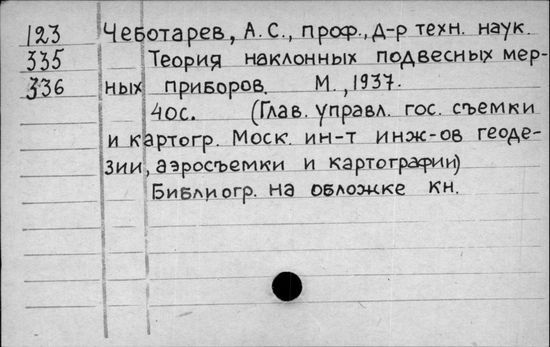 123 Чеботарев, А.С., проф., д-р техн. наук.
335 Теория наклонных подвесных мер-
336 ных приборов. М., 1937.
40с. (Глав. управл. гос. съемки
и картогр. Моск. ин-т инж-ов геоде-
зии, аэросъемки и картографии)
Библиогр. на обложке кн.